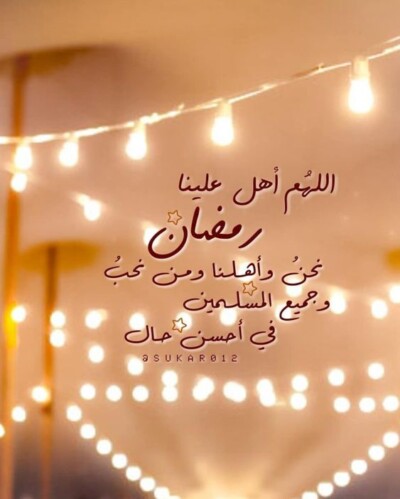 اللهُم أهل علينا
رمضان
نحنُ وأهلنا ومن نحبُ
وجميع المسلمين
في أحسن حال
@SUKAR012